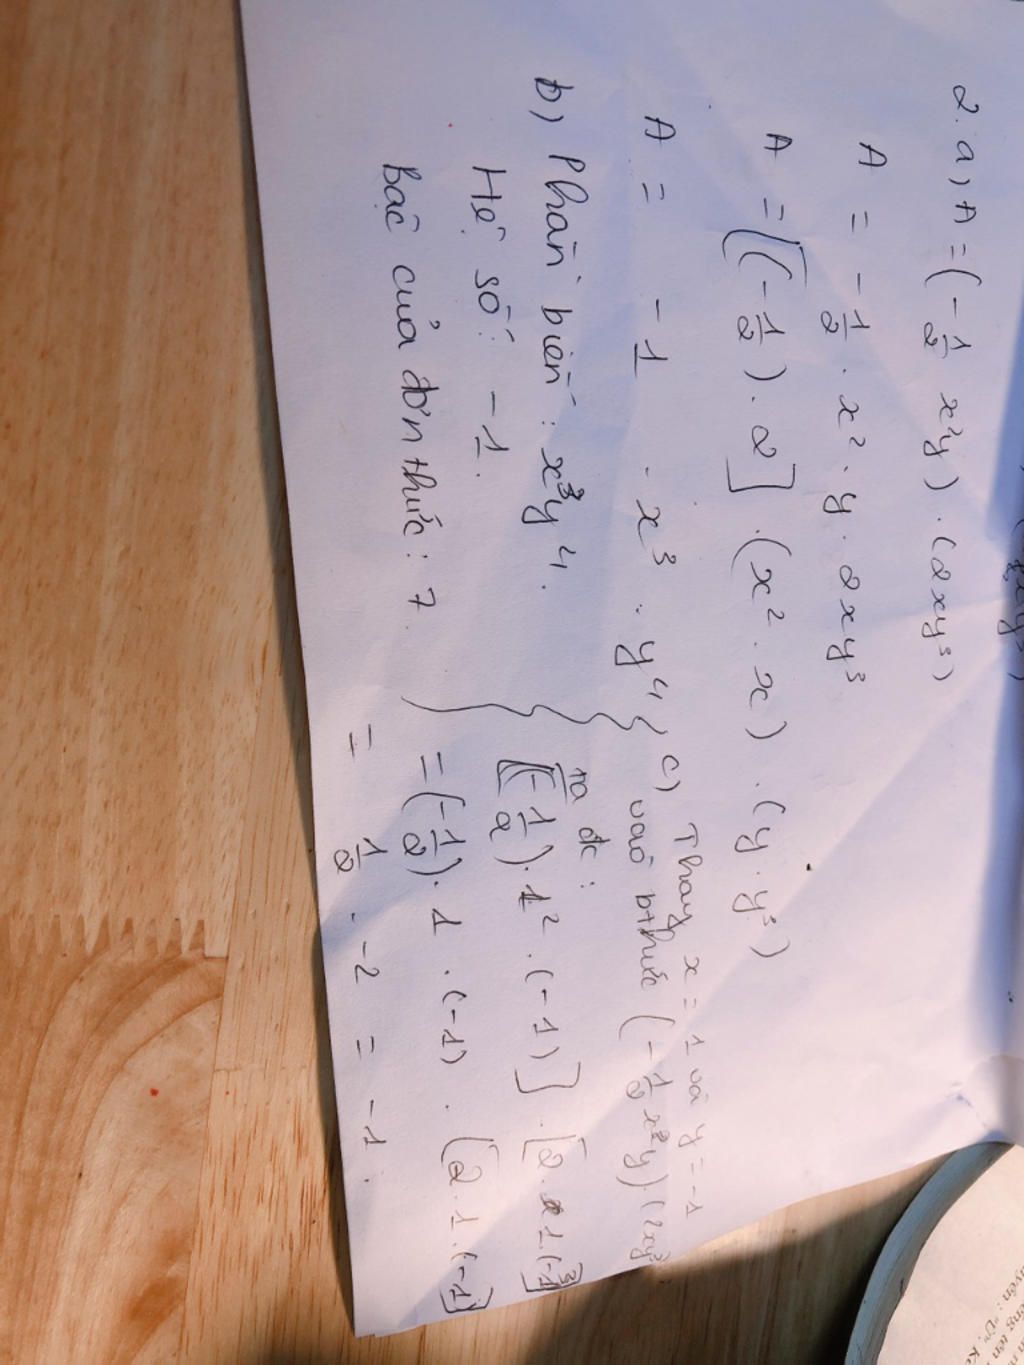 2. a, A = (-1/2 x²y) . (2xy³)
A = -1/2 . x² . y . 2xy³
A = [(-1/2) . 2] . (x² . x) . (y . y³)
A = -1 . x³ . y⁴
b) Phần biến : x³y⁴.
Hệ số: -1.
Bậc của đơn thức: 7.
c) Thay x = 1 và y = -1
vào bthức (-1/2 x²y).(2xy³
ta đc :
[(-1/2) . 1² . (-1)] . [2 . 1 . (-1)³]
= (-1/2) . 1 . (-1) . [2 . 1 . (-1)]
= 1/2 . -2 = -1 .